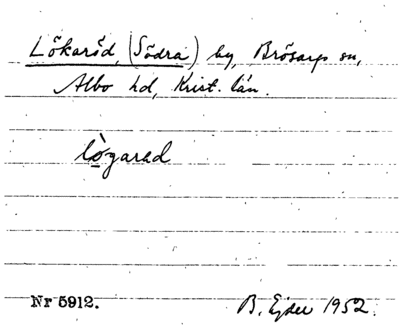 Lökaröd, (Södra) by, Brösarps sn,
Albo hd, Krist. län.
lògarad
Nr 5912.
B. Ejder 1952.